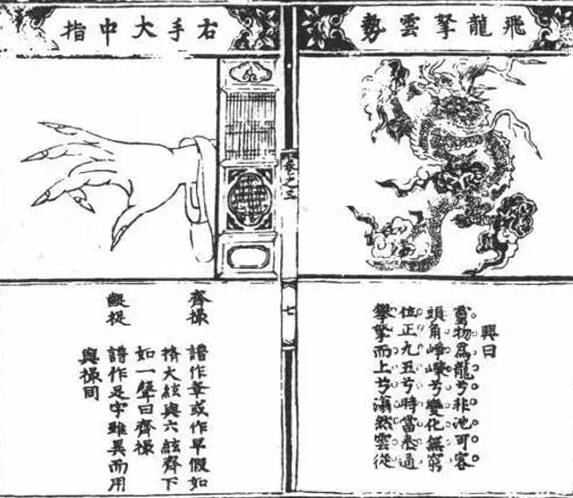 飛龍拏雲勢
興曰
靈物為龍兮非池可容
頭角崢嶸兮變化無窮
位正九五兮時當泰通
攀拏而上兮滃然雲從
卷之三
七
右手大中指
齊撮
譜作或作早假如
大絃與六絃齊下
如一聲曰齊撮
齪捉
譜作足字雖異而用
與撮同